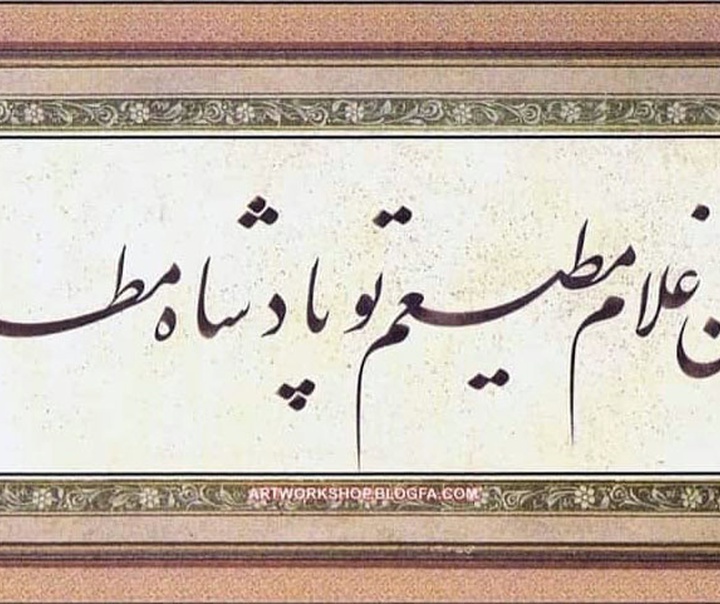 ن غلام مطیعم تو پادشاه مط
ARTWORKSHOP.BLOGFA.COM